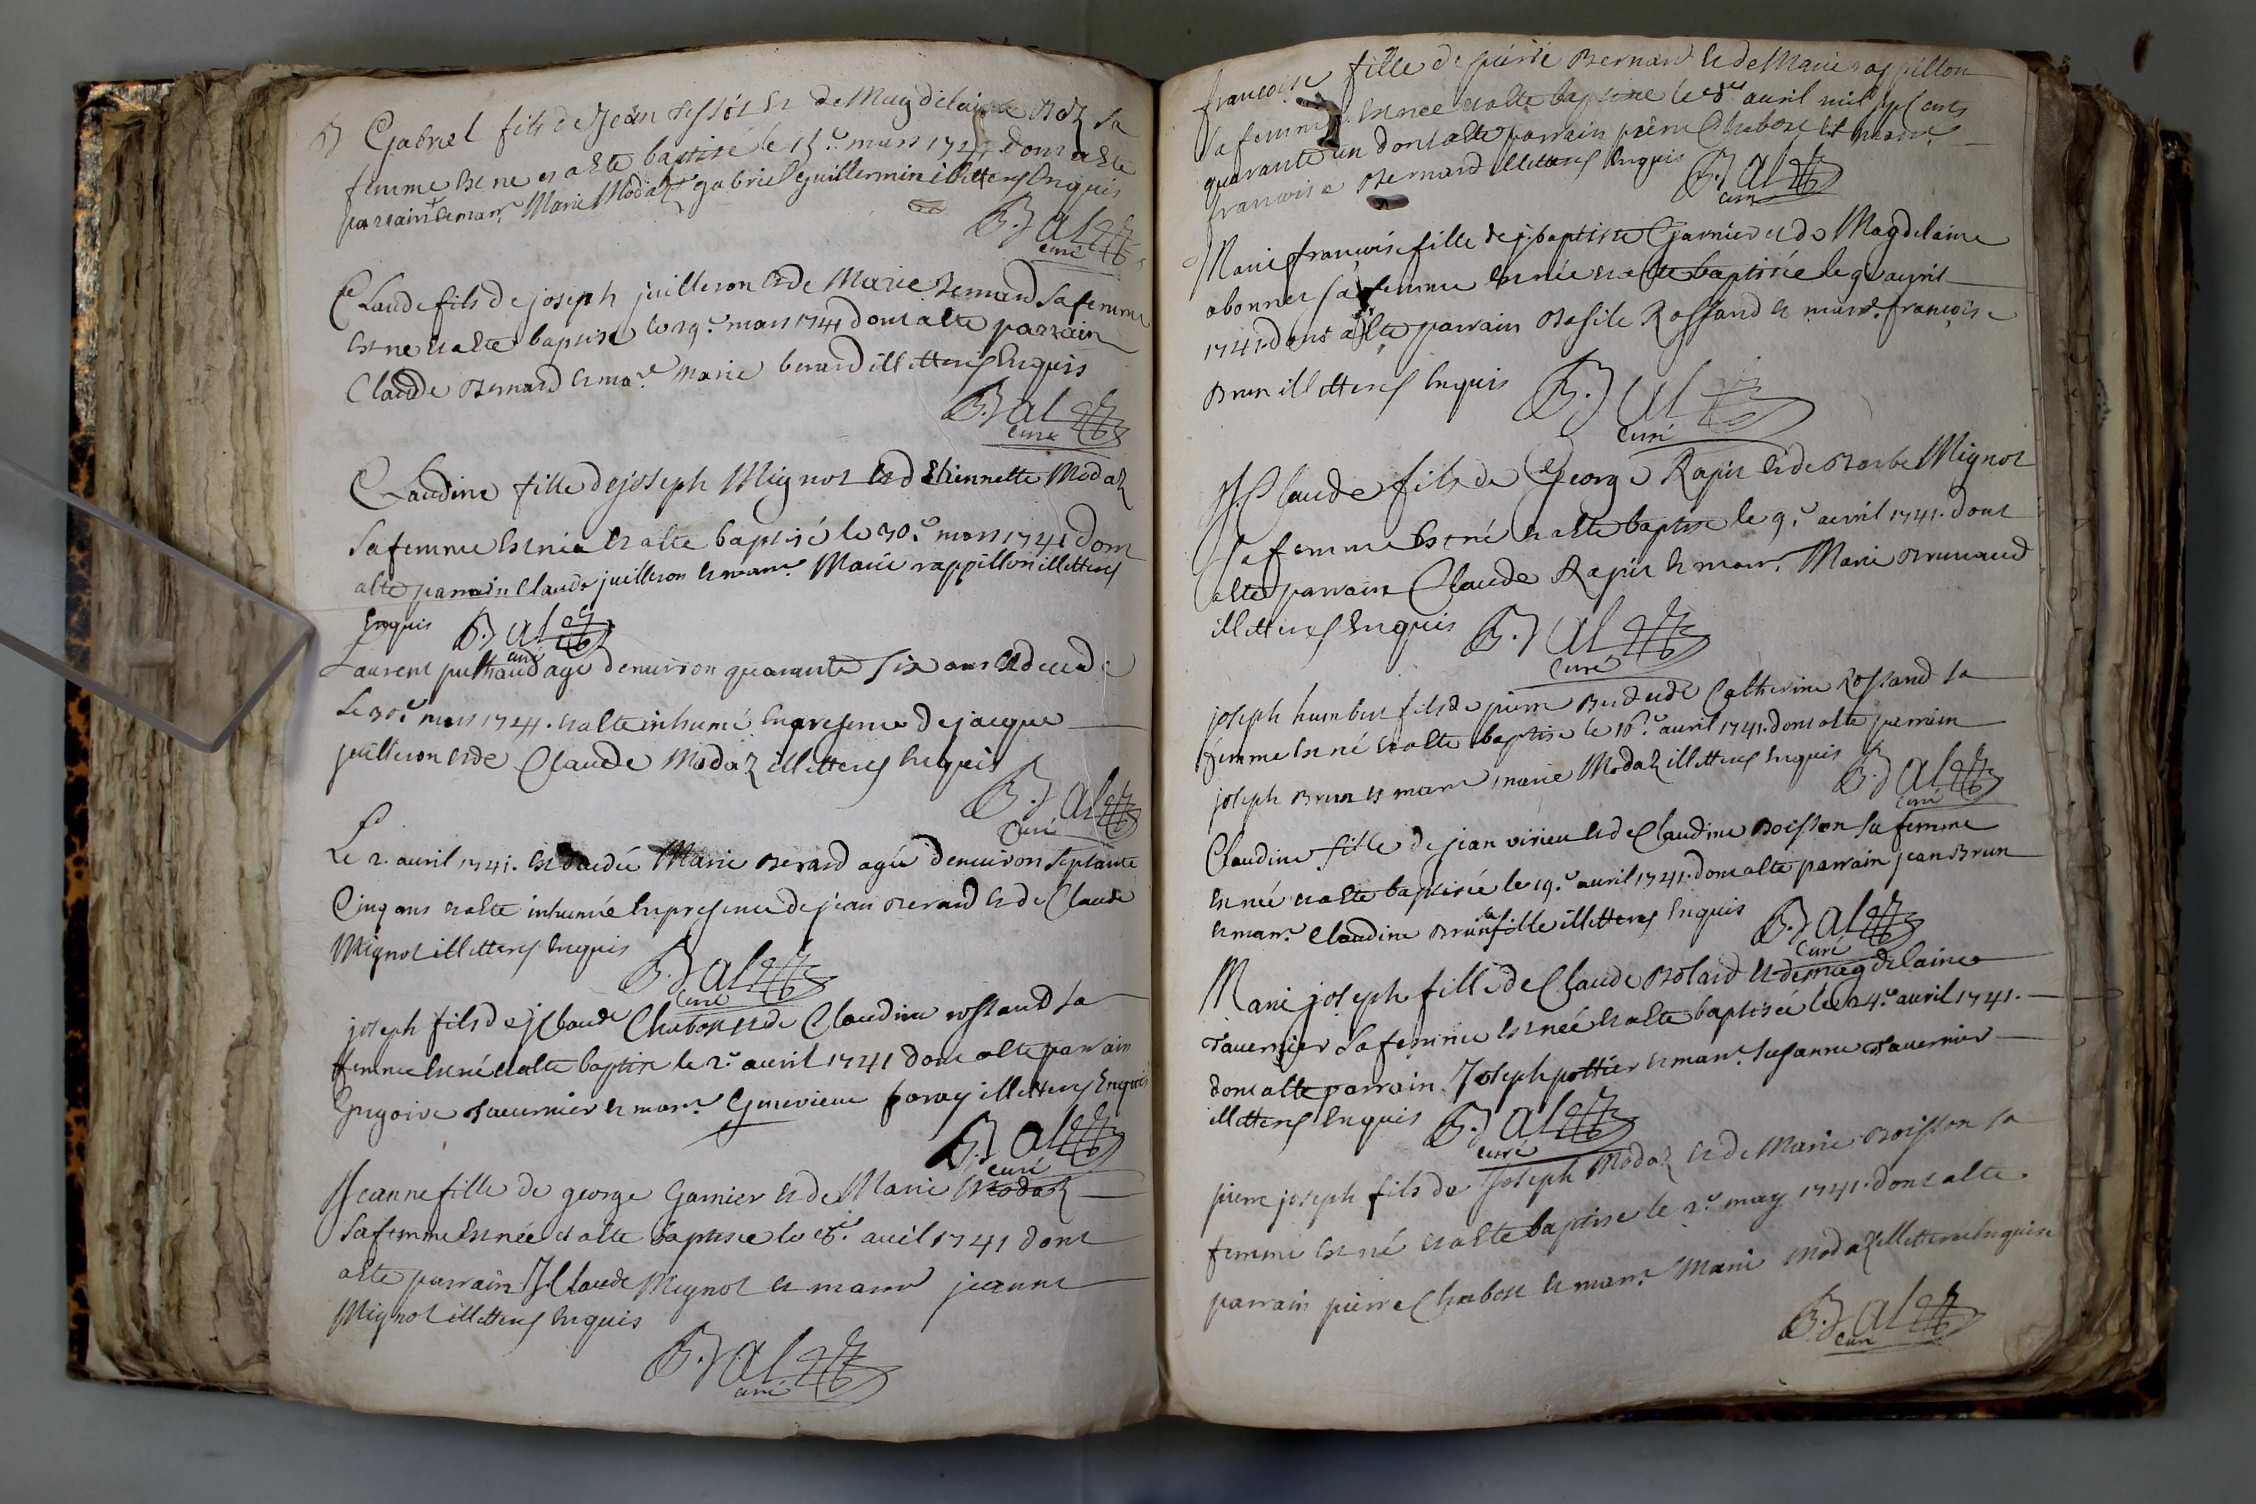 Gabriel fils de Jean et de Magdelaine sa
femme est né et a este baptisé le mars 1741 dont a este
parrain et marr.e Marie Modaz gabriel guillermin illitterés Enquis
B. J al
curé
Claude fils de joseph juilleron et de Marie Bernard sa femme
est né et a este baptisé le 29.e mars 1741 dont a esté parrain
Claude Bernard et ma.re marie berard illitterés Enquis
B. J al
curé
Claudine fille de joseph Mignot et d Etiennette Modaz
sa femme est née et a esté baptisé le 30.e mars 1741 dont
a esté parrain Claude juilleron et marr.e Marie rappillon illitterés
Enquis B. J al
curé
Laurent agé denviron quarante six ans est decedé
le 30.e mars 1741. et a esté inhumé En presence de jacque
juilleron et de Claude Modaz illitterés Enquis
B. J al
curé
Le 2. avril 1741. est decedée Marie Berard agée denviron septante
Cinq ans et a esté inhumée En presence de jean Berard et de Claude
Mignot illitterés Enquis B. J al
curé
joseph fils de jClaude Chabose et de Claudine rossand sa
femme est né et a esté baptisé le 2.e avril 1741 dont a esté parrain
Gregoire tavernier et marr.e Genevieve foray illitterés Enquis
B. J al
curé
Jeanne fille de george Garnier et de Marie Modaz
sa femme est née et a esté baptisée le 8.e avril 1741 dont
a esté parrain J. Claude Mignot et marr.e jeanne
Mignot illitterés Enquis
B. J al
curé
francoise fille de pierre Bernard et de Marie rappillon
sa femme est née et a esté baptisée le 8.e avril mil sept cents
quarante un dont a esté parrain pierre Chabose et marr.e
francoise Bernard illitterés Enquis B. J al
curé
Marie françoise fille de j. baptiste Garnier et de Magdelaine
abonnet sa femme est née et a esté baptisée le 9 avril
1741. dont a esté parrain Basile Rossand et marr.e françoise
Brun illitterés Enquis B. J al
curé
J. Claude fils de George Rapin et de Barbe Mignot
sa femme est né et a esté baptisé le 9.e avril 1741. dont
a esté parrain Claude Rapin et marr.e Marie Brunaud
illitterés Enquis B. J al
curé
joseph humbert fils de pierre et de Catherine Rossand sa
femme est né et a esté baptisé le 16.e avril 1741. dont a esté parrain
joseph Brun et marr.e marie Modaz illitterés Enquis B. J al
curé
Claudine fille de jean virieu et de Claudine Boisson sa femme
est née et a esté baptisée le 19.e avril 1741. dont a esté parrain jean Brun
et marr.e Claudine Brun sa fille illitterés Enquis B. J al
curé
Marie joseph fille de Claude Bolard et de magdelaine
tavernier sa femme est née et a esté baptisée le 24.e avril 1741.
dont a esté parrain Joseph pottier et marr.e susanne tavernier
illitterés Enquis B. J al
curé
pierre joseph fils de Joseph Modaz et de Marie Boisson sa
femme est né et a esté baptisé le 2.e may 1741. dont a esté
parrain pierre Chabose et marr.e Marie Modaz illitterés Enquis
B. J al
curé